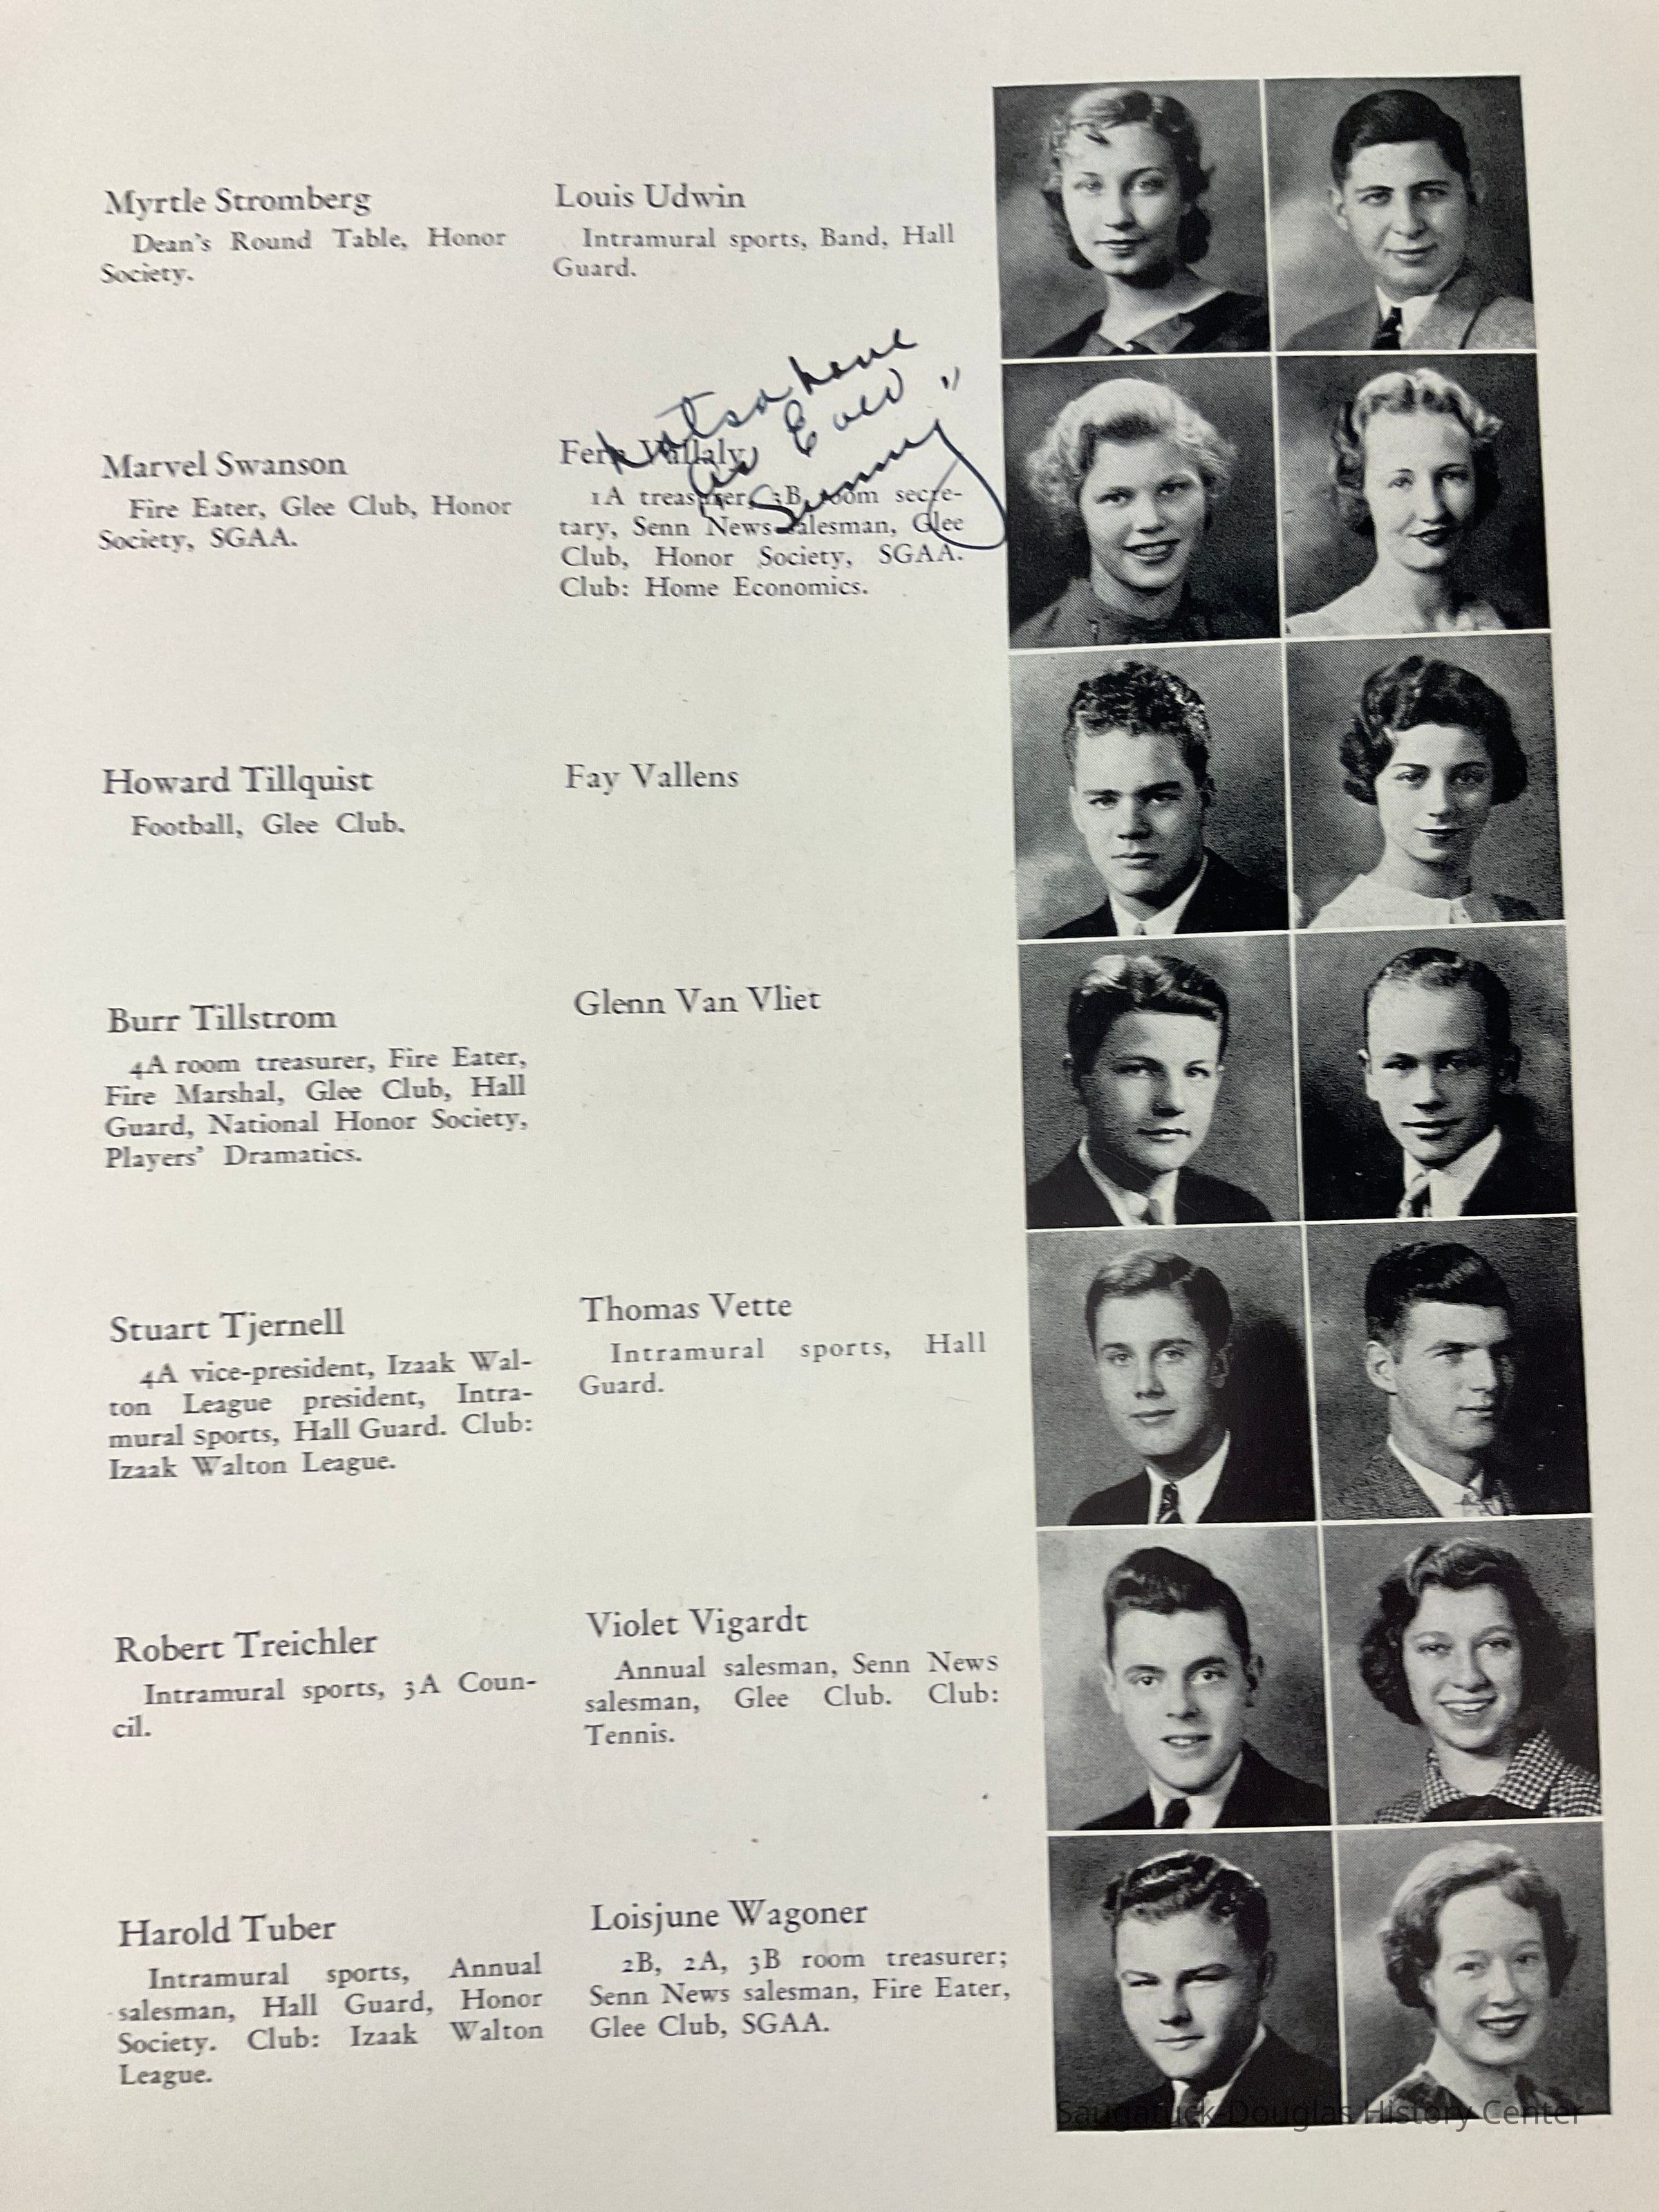 Myrtle Stromberg
Dean's Round Table, Honor
Society.
Louis Udwin
Intramural sports, Band, Hall
Guard.
Marvel Swanson
Fire Eater, Glee Club, Honor
Society, SGAA.
Fern Vallaly
1A treasurer, 3B room secre-
tary, Senn News salesman, Glee
Club, Honor Society, SGAA.
Club: Home Economics.
"Sunny"
Howard Tillquist
Football, Glee Club.
Fay Vallens
Burr Tillstrom
4A room treasurer, Fire Eater,
Fire Marshal, Glee Club, Hall
Guard, National Honor Society,
Players' Dramatics.
Glenn Van Vliet
Stuart Tjernell
4A vice-president, Izaak Wal-
ton League president, Intra-
mural sports, Hall Guard. Club:
Izaak Walton League.
Thomas Vette
Intramural sports, Hall
Guard.
Robert Treichler
Intramural sports, 3A Coun-
cil.
Violet Vigardt
Annual salesman, Senn News
salesman, Glee Club. Club:
Tennis.
Harold Tuber
Intramural sports, Annual
salesman, Hall Guard, Honor
Society. Club: Izaak Walton
League.
Loisjune Wagoner
2B, 2A, 3B room treasurer;
Senn News salesman, Fire Eater,
Glee Club, SGAA.
Saugatuck-Douglas History Center